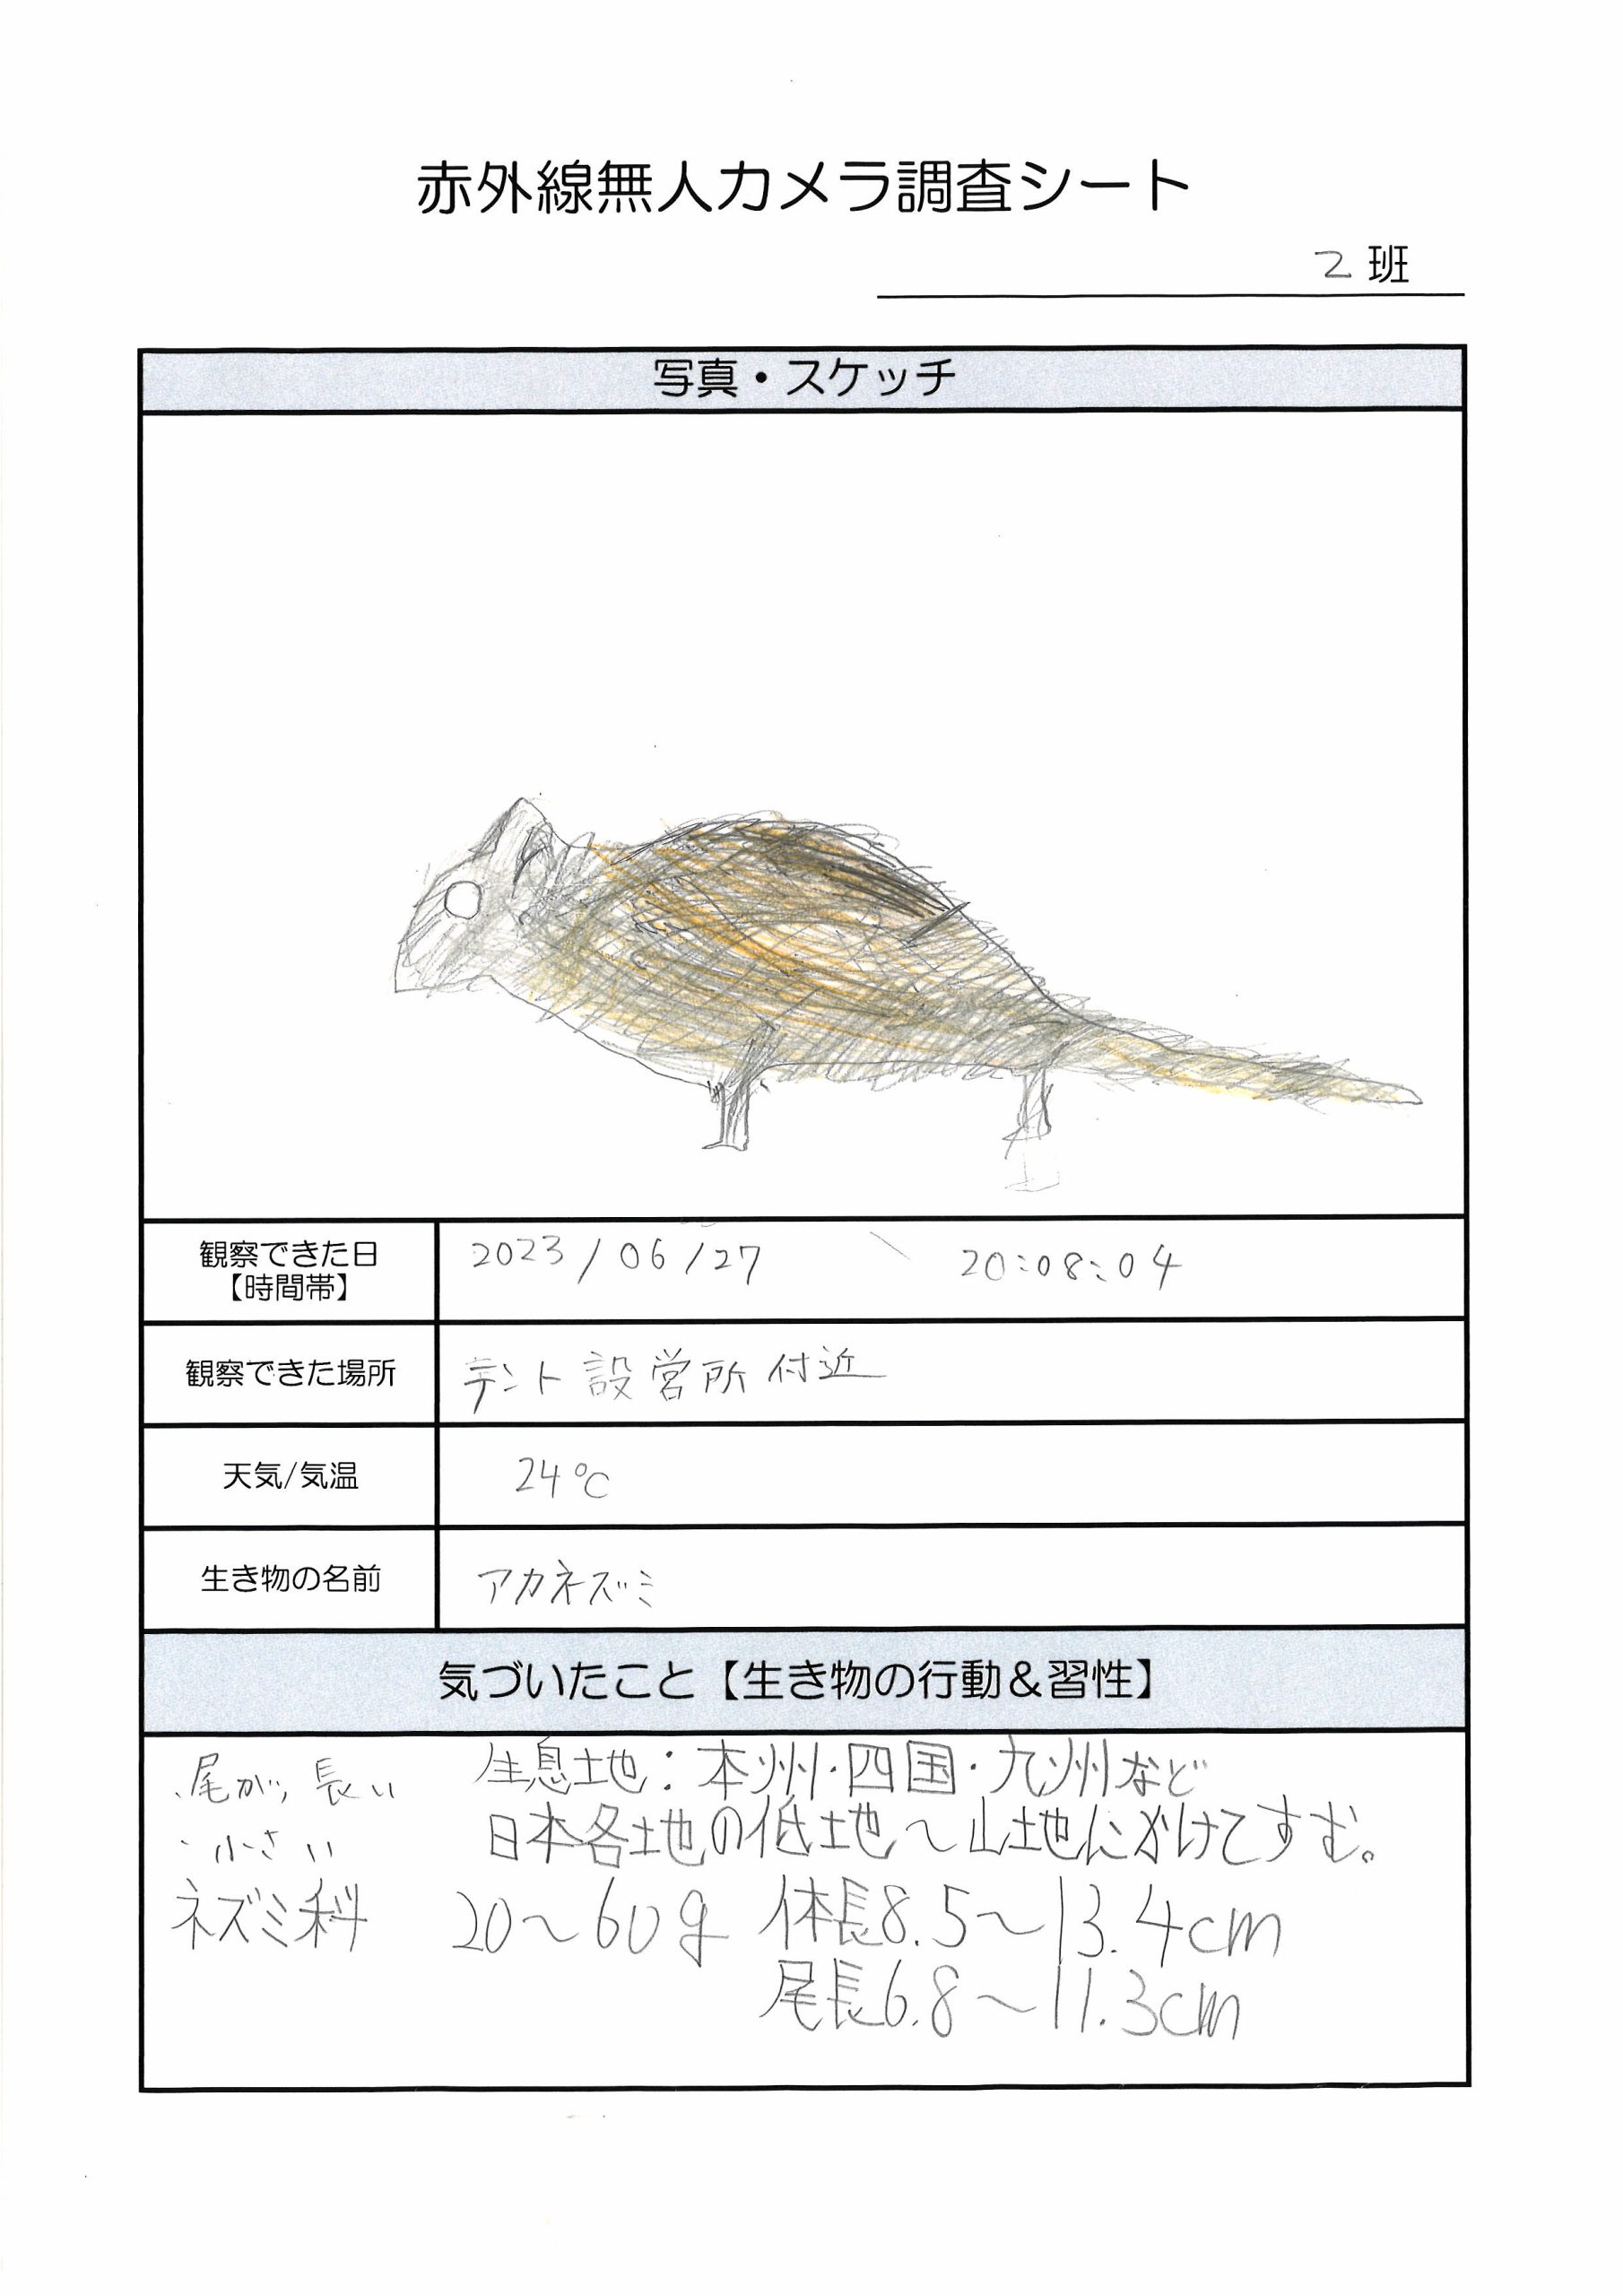 赤外線無人カメラ調査シート
2班
写真・スケッチ
観察できた日
【時間帯】
2023/06/27 20:08:04
観察できた場所
テント設営所付近
天気/気温
24℃
生き物の名前
アカネズミ
気づいたこと【生き物の行動&習性】
・尾が長い
・小さい
ネズミ科
生息地:本州・四国・九州など
日本各地の低地~山地にかけてすむ。
20~60g 体長8.5~13.4cm
尾長6.8~11.3cm